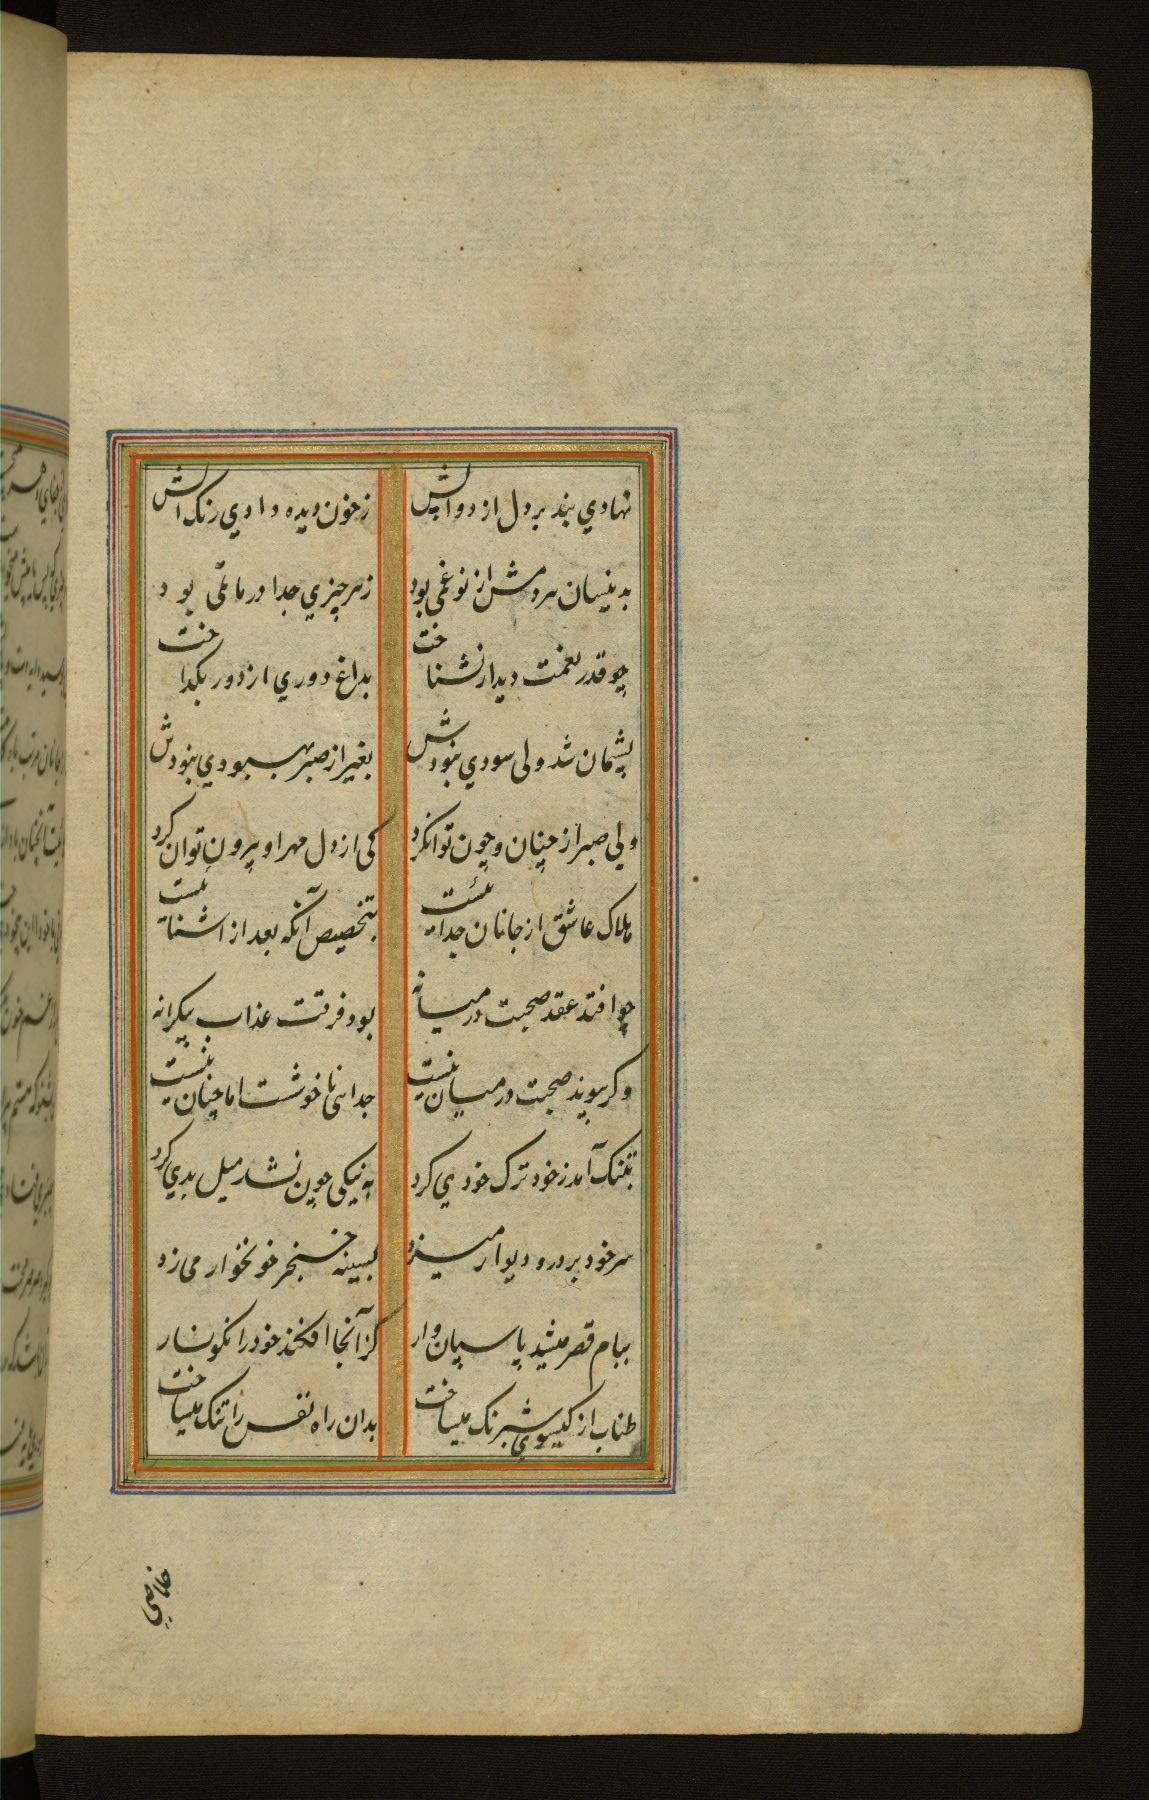 نهادی بند بر دل از دوایش زخون دیده دادی رنک آتش
بدینسان هردمش از نو غمی بود زهر چیزی جدا در ماتمی بود
چو قدر نعمت دیدار نشناخت بداغ دوری از دور بکداخت
پشیمان شد ولی سودی نبودش بغیر از صبر بهبودی نبودش
ولی صبر از چنان و چون توانکرد کی از دل مهر او بیرون توان کرد
هلاک عاشق از جانان جدایئست بتخصیص آنکه بعد از اشنایئست
چو افتد عقد صحبت در میانه بود فرقت عذاب بیکرانه
وکر پیوند صحبت در میان نیست جدائی ناخوشست اما چنان نیست
بتنک آمد زخود ترک خودی کرد به نیکی چون نشد میل بدی کرد
سر خود بر در و دیوار میزد بسینه خنجر خونخوار می زد
ببام قصر میشد پاسبان وار کز آنجا افکند خود را نکونسار
طناب از کیسوی شبرنک میساخت بدان راه نفس را تنک میساخت
خلاصی